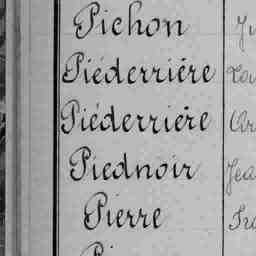 Pichon
Piéderrière
Piéderrière
Piednoir
Pierre